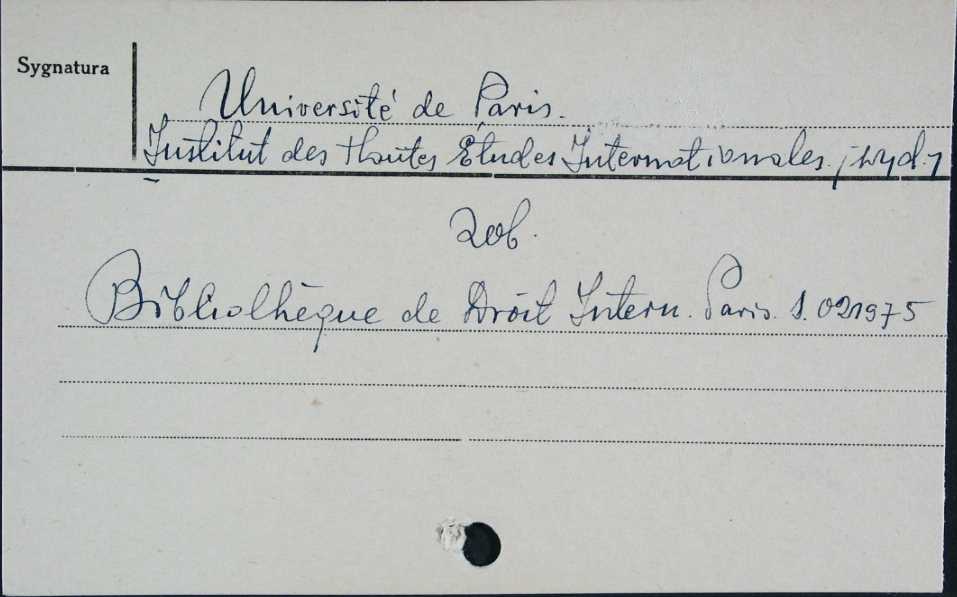 Sygnatura
Université de Paris.
Institut des Hautes Études Internationales. /wyd./
Zob.
Bibliothèque de Droit Intern. Paris. S. 021975